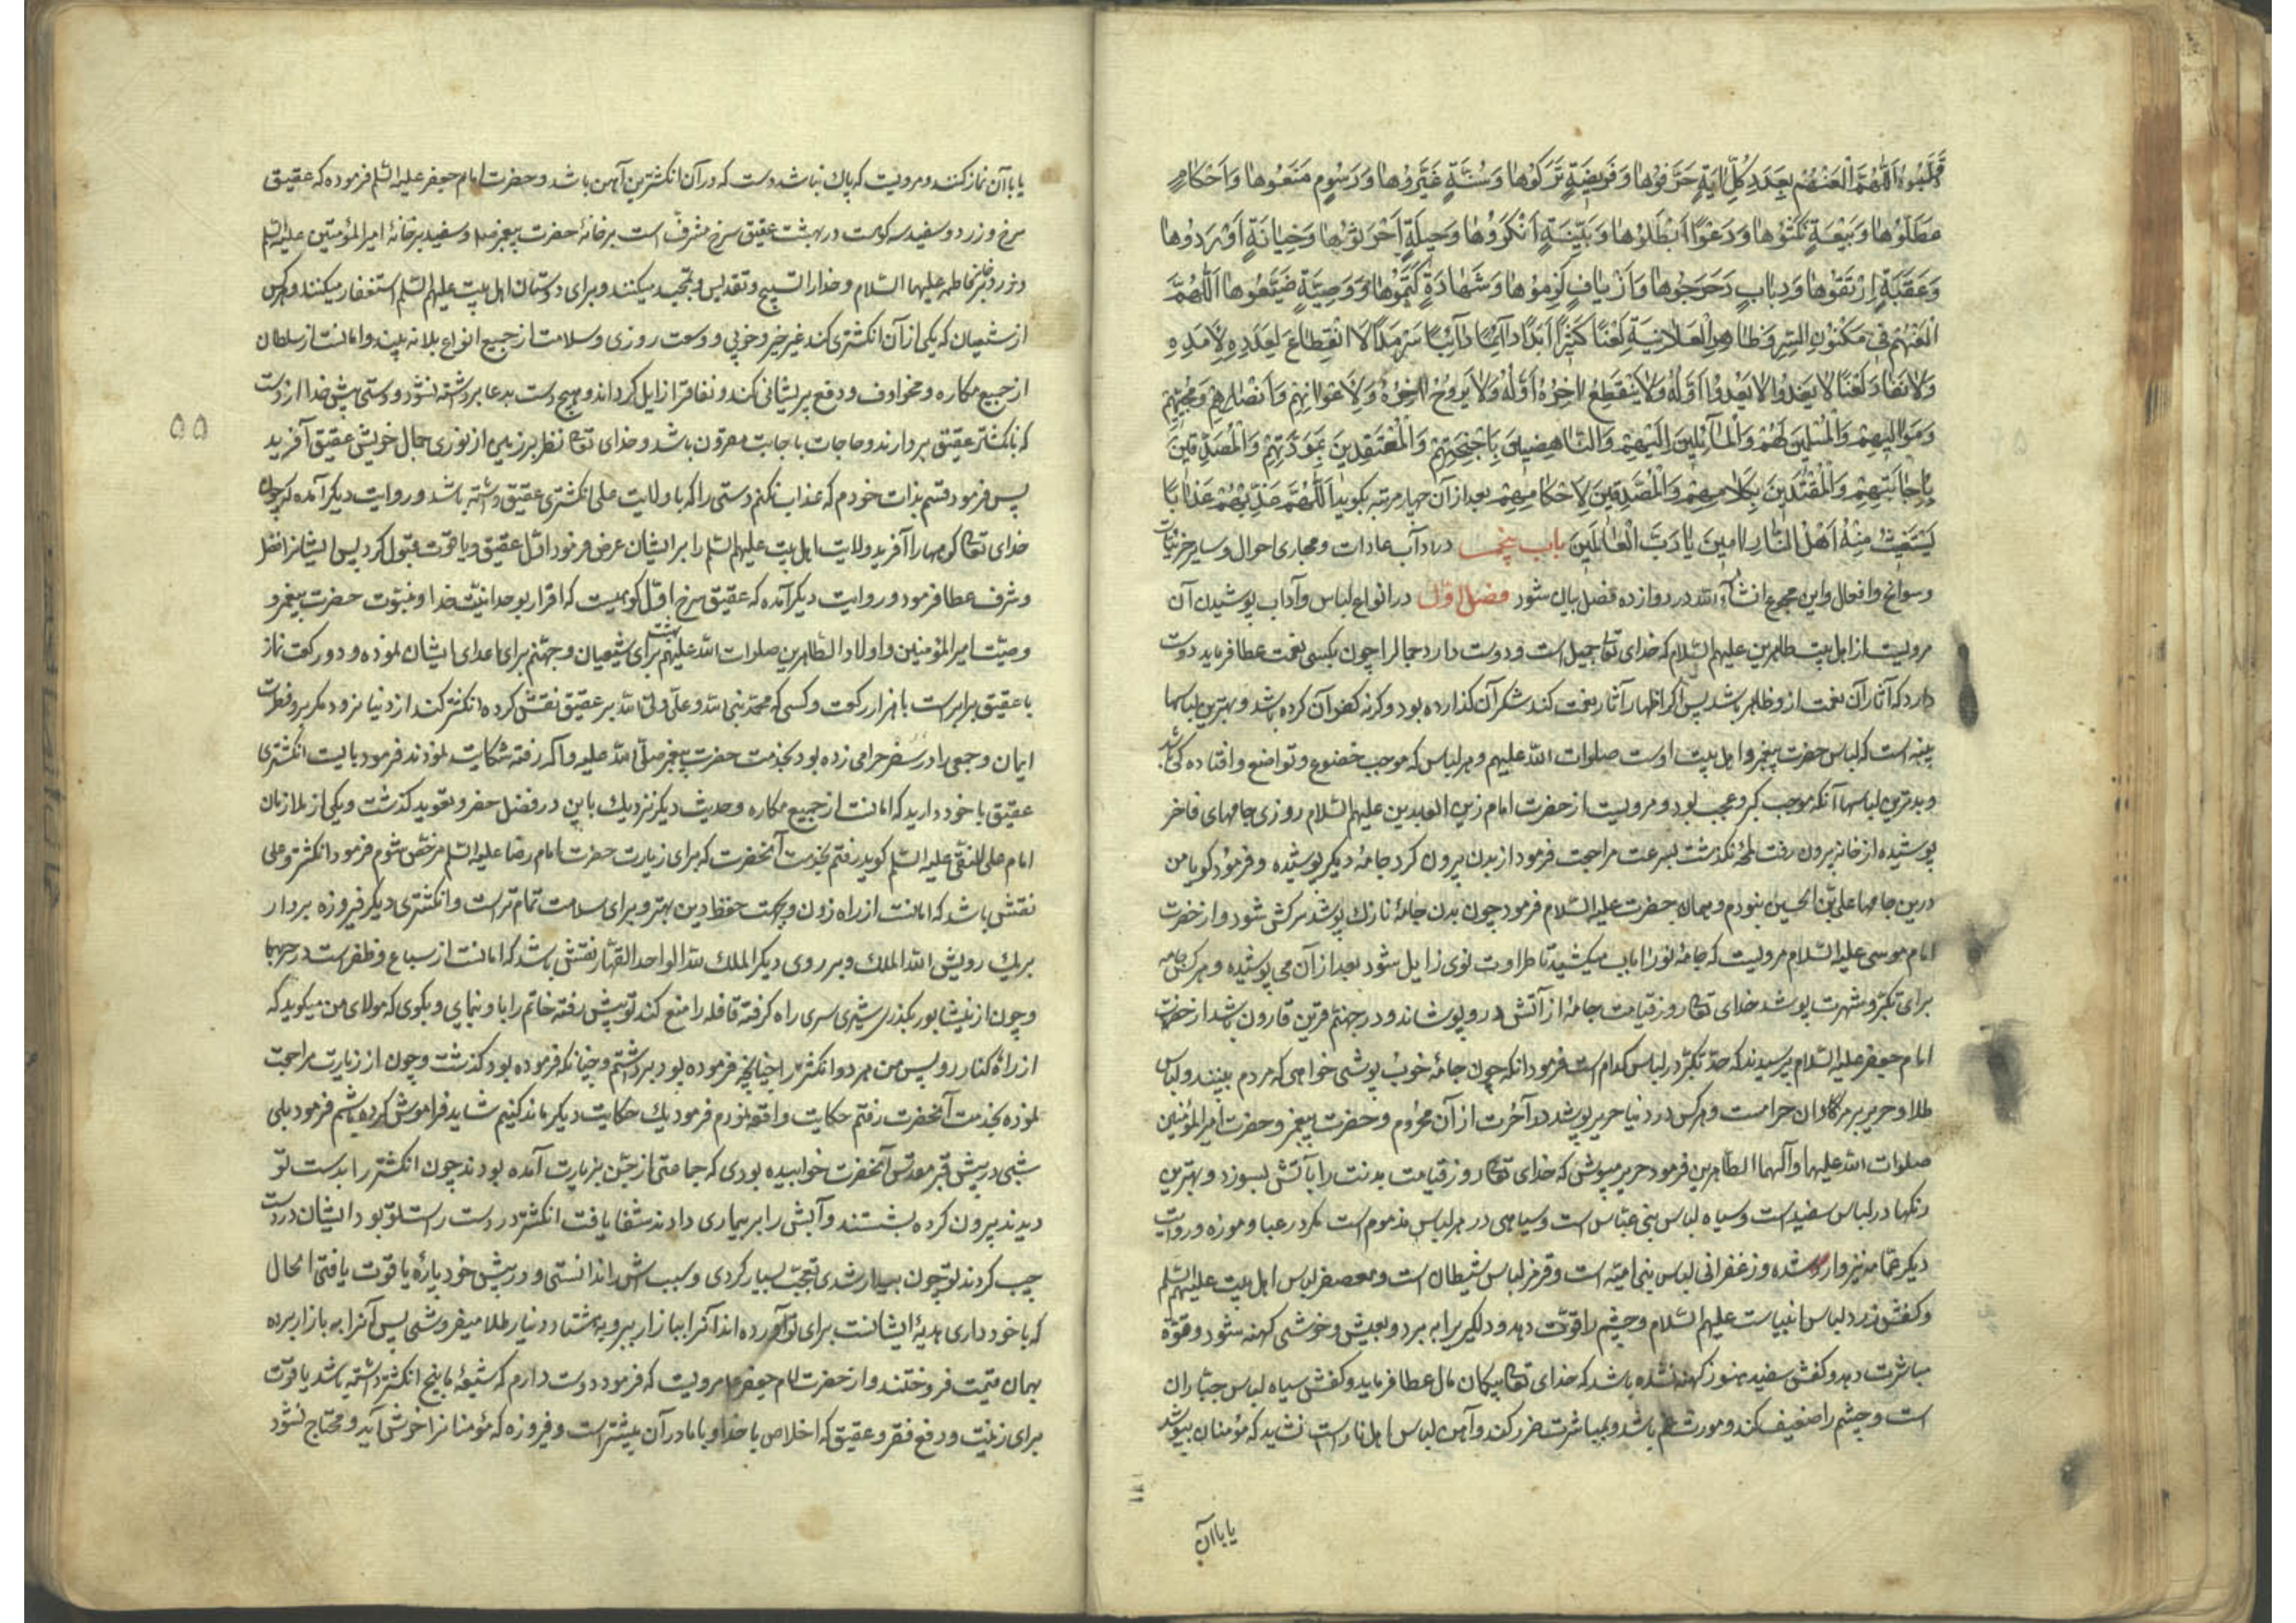 قَلَبُوهُ اَللّٰهُمَّ الْعَنْهُمْ بِعَدَدِ كُلِّ اٰيَةٍ حَرَّفُوهٰا وَفَرِيضَةٍ تَرَكُوهٰا وَسُنَّةٍ غَيَّرُوهٰا وَرُسُومٍ مَنَعُوهٰا وَاَحْكٰامٍ
عَطَّلُوهٰا وَبَيْعَةٍ نَكَثُوهٰا وَدَعْوًى اَبْطَلُوهٰا وَبَيِّنَةٍ اَنْكَرُوهٰا وَحِيلَةٍ اَحْدَثُوهٰا وَخِيٰانَةٍ اَوْرَدُوهٰا
وَعَقَبَةٍ اِرْتَقَوْهٰا وَدِبٰابٍ دَحْرَجُوهٰا وَاَزْيٰافٍ لَزِمُوهٰا وَشَهٰادَةٍ كَتَمُوهٰا وَوَصِيَّةٍ ضَيَّعُوهٰا اَللّٰهُمَّ
الْعَنْهُمْ فِى مَكْنُونِ السِّرِّ وَظٰاهِرِ الْعَلٰانِيَةِ لَعْنًا كَثِيرًا اَبَدًا دٰآئِمًا دٰآئِبًا سَرْمَدًا لَا انْقِطٰاعَ لِعَدَدِهِ وَلٰا لِاَمَدِهِ
وَلٰا نَفٰادَ لَعْنًا يَغْدُو اَوَّلُهُ وَلٰا يَنْقَطِعُ اٰخِرُهُ وَلٰا يَرُوحُ اٰخِرُهُ لَهُمْ وَلِاَعْوٰانِهِمْ وَاَنْصٰارِهِمْ وَمُحِبِّيهِمْ
وَمَوٰالِيهِمْ وَالْمُسْلِمِينَ لَهُمْ وَالْمٰآئِلِينَ اِلَيْهِمْ وَالنّٰاهِضِينَ بِاَجْنِحَتِهِمْ وَالْمُعْتَقِدِينَ بِمَوَدَّتِهِمْ وَالْمُصَدِّقِينَ
بِاِجٰابَتِهِمْ وَالْمُقْتَدِينَ بِكَلٰامِهِمْ وَالْمُصَدِّقِينَ لِاَحْكٰامِهِمْ بعد از آن چهار مرتبه بگويد اَللّٰهُمَّ عَذِّبْهُمْ عَذٰابًا
يَسْتَغِيثُ مِنْهُ اَهْلُ النّٰارِ اٰمِينَ يٰا رَبَّ الْعٰالَمِينَ باب پنجم در آداب عادات و مجارى احوال و ساير جزئيات
و سوانح و افعال و اين مجموع انشآء الله در دوازده فصل بيان شود فصل اول در انواع لباس و آداب پوشيدن آن
مرويست از اهل بيت طاهرين عليهم السلام كه خداى تعا جميل است و دوست دارد جمال را چون بكسى نعمت عطا فرمايد دوست
دارد كه آثار آن نعمت ازو ظاهر باشد پس اگر اظهار آثار نعمت كند شكر آن گذارده بود و گرنه كفران كرده باشد و بهترين لباسها
پنبه است كه لباس حضرت پيغمبر و اهل بيت اوست صلوات الله عليهم و هر لباس كه موجب خضوع و تواضع و افتاده كى باشد
و بدترين لباسها آنكه موجب كبر و عجب بود و مرويست از حضرت امام زين العابدين عليهم السلام روزى جامهاى فاخر
پوشيده از خانه بيرون رفت لمحهٔ نگذشت بسرعت مراجعت فرمود از بدن بيرون كرد جامهٔ ديگر پوشيده و فرمود گويا من
درين جامها على بن الحسين نبودم و همان حضرت عليه السلام فرمود چون بدن جامهٔ نازك پوشد سركش شود و از حضرت
امام موسى عليه السلام مرويست كه جامهٔ نو را بآب ميكشيد تا طراوت نوى زايل شود بعد از آن مى پوشيده و هر كس جامه
براى تكبر و شهرت پوشد خداى تعا روز قيامت جامهٔ از آتش درو پوشاند و در جهنم قرين قارون باشد از حضرت
امام جعفر عليه السلام پرسيدند كه حد تكبر در لباس كدام است فرمود انكه چون جامهٔ خوب پوشى خواهى كه مردم بينند و لباس
طلا و حرير بر مردان حرامست و هر كس در دنيا حرير پوشد در آخرت از آن محروم و حضرت پيغمبر و حضرت امير المؤمنين
صلوات الله عليهما و آلهما الطاهرين فرمود حرير مپوش كه خداى تعا روز قيامت بدنت را بآتش بسوزد و بهترين
رنگها در لباس سفيد است و سياه لباس بنى عباس است و سياهى در هر لباس مذموم است مگر در عبا و موزه و روايت
ديگر عمامه نيز وارد شده و زعفرانى لباس بنى اميه است و قرمز لباس شيطان است و معصفر لباس اهل بيت عليهم السلم
و كفش زرد لباس انبياست عليهم السلام و چشم را قوت دهد و دلگيرى را به برد و بعيش و خوشى كهنه شود و قوة
مباشرت دهد و كفش سفيد هنوز كهنه نشده باشد كه خداى تعا بيكمان مال عطا فرمايد و كفش سياه لباس جباران
است و چشم را ضعيف كند و مورث غم باشد و بمباشرت ضرر كند و آهن لباس اهل نار است نشايد كه مؤمنان بپوشد
يا باآن
يا باآن نماز كنند و مرويست كه پاك نباشد دست كه در آن انگشترين آهن باشد و حضرت امام جعفر عليه السلم فرموده كه عقيق
سرخ و زرد و سفيد سه كوهست در بهشت عقيق سرخ مشرف است بر خانهٔ حضرت پيغمبر صلم و سفيد بر خانهٔ امير المؤمنين عليه السلم
و زرد بر خانهٔ فاطمه عليها السلام و خدا را تسبيح و تقديس و تمجيد ميكنند و براى دوستان اهل بيت عليهم السلم استغفار ميكنند و هر كس
از شيعيان كه يكى از آن انگشترى كند غير خير و خوبى و وسعت روزى و سلامت از جميع انواع بلا نه بيند و امانست از سلطان
از جميع مكاره و مخاوف و دفع پريشانى كند و نفاق را زايل گرداند و هيچ دست بدعا برداشته نشود دوستى پيش خدا از دست
كه بانگشتر عقيق بردارند و حاجات باجابت مقرون باشد و خداى تعا نظر بر زمين از نورى جمال خويش عقيق آفريد
پس فرمود قسم بذات خودم كه عذاب نكنم دستى را كه با ولايت على انگشترى عقيق داشته باشد و روايت ديگر آمده كه چون
خداى تعا كوهها را آفريد ولايت اهل بيت عليهم السلم را بر ايشان عرض فرمود اول عقيق و ياقوت قبول كرد پس ايشانرا فضل
و شرف عطا فرمود و روايت ديگر آمده كه عقيق سرخ اول كوهيست كه اقرار بوحدانيت خدا و نبوت حضرت پيغمبر و
وصيت امير المؤمنين و اولاد الطاهرين صلوات الله عليهم بهشت براى شيعيان و جهنم براى اعداى ايشان نموده و دو ركعت نماز
با عقيق برابر است با هزار ركعت و كسى كه محمد نبى الله و على ولى الله بر عقيق نقش كرده انگشتر كند از دنيا نرود مگر بر فطرت
ايمان و جمعى را در سفر حرامى زده بود بخدمت حضرت پيغمبر صلى الله عليه و آله رفته شكايت نمودند فرمود بايست انگشترى
عقيق با خود داريد كه امانت از جميع مكاره و حديث ديگر نزديك باين در فصل حضر و تعويد گذشت و يكى از ملازمان
امام على النقى عليه السلم گويد رفتم بخدمت آنحضرت كه براى زيارت حضرت امام رضا عليه السلم مرخص شوم فرمود انگشتر و على
نقش باشد كه امانت از راه زدن و بجهت حفظ دين بهتر و براى سلامت تمام تر است و انگشترى ديگر فيروزه بردار
بر يك رويش الله الملك و بر روى ديگر الملك لله الواحد القهار نقش باشد كه امانت از سباع و ظفر است در حربها
و چون از نيشابور بگذرى شيرى سرى راه گرفته قافله را منع كند تو پيش رفته خاتم را باو بنمايى و بگوى كه مولاى من ميگويد كه
از راه كنار رو پس من هر دو انگشتر را چنانچه فرموده بود برداشتم و چنانكه فرموده بود گذشت و چون از زيارت مراجعت
نموده بخدمت آنحضرت رفتم حكايت واقعه نمودم فرمود يك حكايت ديگر ماند گفتم شايد فراموش كرده باشم فرمود بلى
شبى در پيش قبر مقدس آنحضرت خوابيده بودى كه جماعتى از جن بزيارت آمده بودند چون انگشتر را بدست تو
ديدند بيرون كرده بشستند و آبش را بر بيمارى دادند شفا يافت انگشتر در دست راست تو بود ايشان در دست
چپ كردند تو چون بيدار شدى تعجب بسيار كردى و سبب اش را ندانستى و در پيش خود پارهٔ ياقوت يافتى الحال
كه با خود دارى هديهٔ ايشانست براى تو آورده اند آنرا ببازار ببر و به هشتاد دينار طلا ميفروشى پس آنرا به بازار برده
بهمان قيمت فروختند و از حضرت امام جعفر مرويست كه فرمود دوست دارم كه شيعهٔ ما پنج انگشتر داشته باشد ياقوت
براى زينت و دفع فقر و عقيق كه اخلاص با خدا و با ما در آن بيشتر است و فيروزه كه مؤمنانرا خوش آيد و محتاج نشود
۵۵